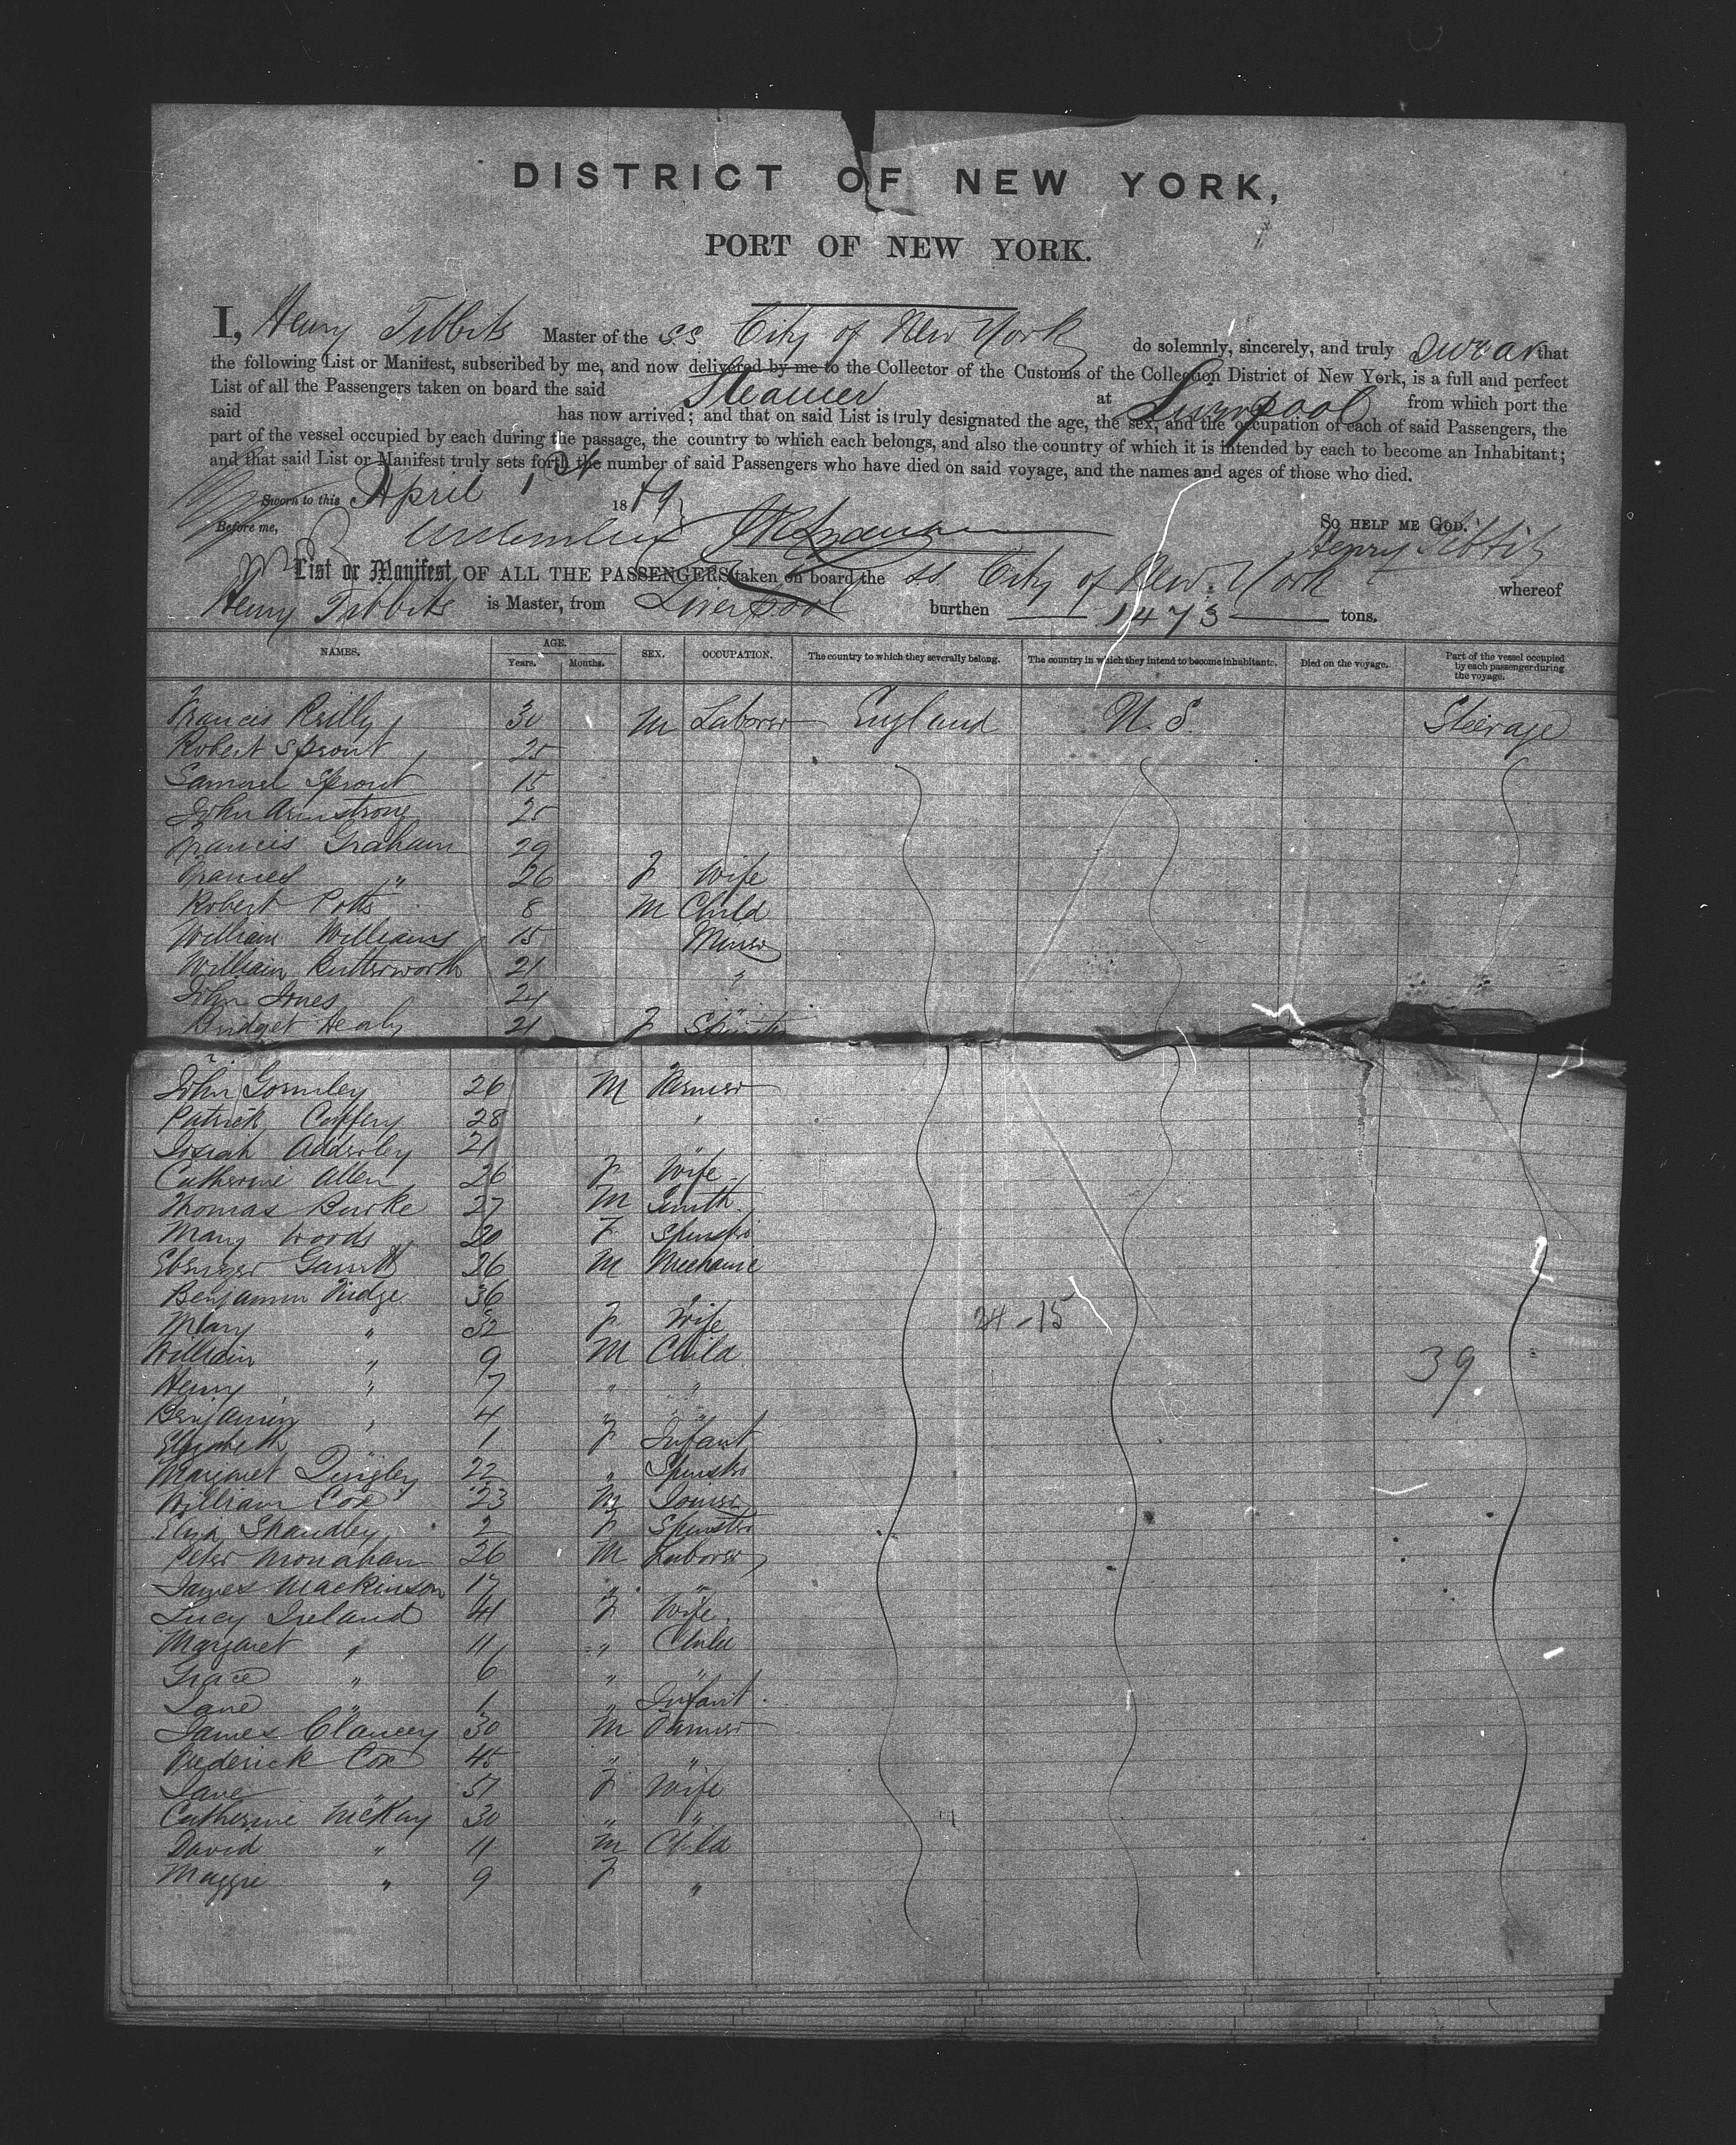 DISTRICT OF NEW YORK,
PORT OF NEW YORK.
I, Henry Tibbits Master of the SS City of New York do solemnly, sincerely, and truly swear that
the following List or Manifest, subscribed by me, and now delivered by me to the Collector of the Customs of the Collection District of New York, is a full and perfect
List of all the Passengers taken on board the said Steamer at Liverpool from which port the
said has now arrived; and that on said List is truly designated the age, the sex, and the occupation of each of said Passengers, the
part of the vessel occupied by each during the passage, the country to which each belongs, and also the country of which it is intended by each to become an Inhabitant;
and that said List or Manifest truly sets forth the number of said Passengers who have died on said voyage, and the names and ages of those who died.
Sworn to this April 18
Before me, SO HELP ME GOD.
Henry Tibbits
List or Manifest OF ALL THE PASSENGERS taken on board the SS. City of New York whereof
Henry Tibbits is Master, from Liverpool burthen 1473 tons.
NAMES. AGE. Years. Months. SEX. OCCUPATION. The country to which they severally belong. The country in which they intend to become inhabitants. Died on the voyage. Part of the vessel occupied by each passenger during the voyage.
Francis Reilly 30 M Laborer England U.S. Steerage
Robert Sprout 25
Samuel Sprout 15
John Armstrong 25
Francis Graham 29
Frances " 26 F Wife
Robert Potts 8 M Child
William Williams 15 Miner
William Butterworth 21 "
John Jones 24 "
Bridget Healy 21 F Spinster
John Gormley 26 M Farmer
Patrick 28 "
Josiah Adderley 21 "
Catherine Allen 26 F Wife
Thomas Burke 27 M Smith
Mary Woods 20 F Spinster
Ebenezer Garrett 26 M Mechanic
Benjamin 36 "
Mary " 32 F Wife
24-15
William " 9 M Child
39
Henry " 7 " "
Benjamin " 4 " "
Elizabeth " 1 F Infant
Margaret 22 " Spinster
William Cox 23 M Joiner
Eliza 2 F Spinster
Peter Monahan 26 M Laborer
James Mackinson 17 " "
Lucy Ireland 41 F Wife
Margaret " 11 " Child
Grace " 6 " "
Jane " 1 " Infant
James Clancey 30 M Farmer
Frederick Cox 45 " "
Jane " 51 F Wife
Catherine McKay 30 " "
David " 11 M Child
Maggie " 9 F "